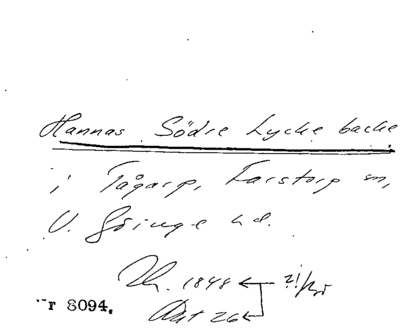 Hannas Södre Lycke backe
i Tågarp, Farstorp sn,
V. Göinge hd.
1848
Akt 26
r 8094.